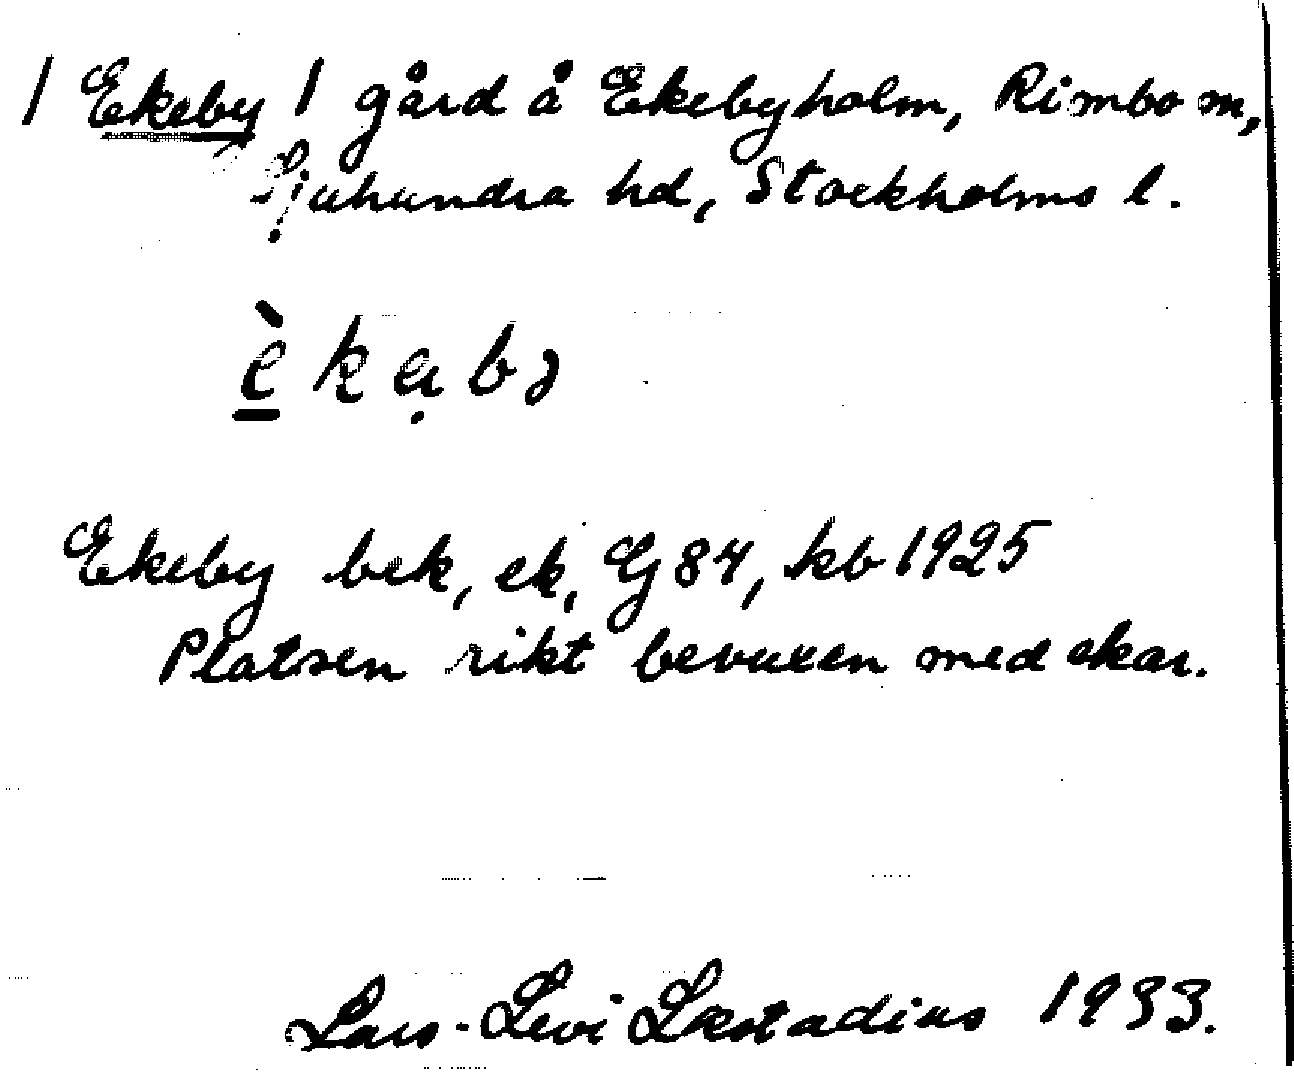 / Ekeby / gård å Ekebyholm, Rimbo sn,
Sjuhundra hd, Stockholms l.
è k ạ b ɿ
Ekeby bek, ek, G84, kb 1925
Platsen rikt bevuxen med ekar.
Lars-Levi Læstadius 1933.